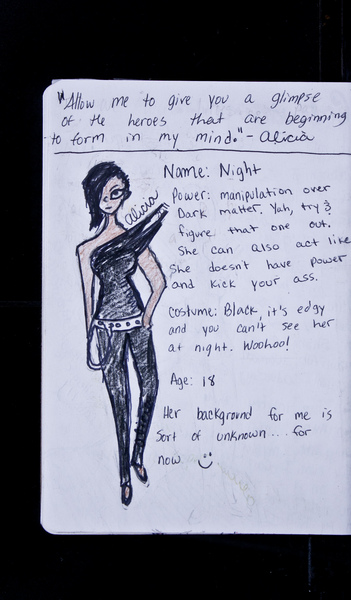 "Allow me to give you a glimpse
of the heroes that are beginning
to form in my mind." - Alicia
Name: Night
Alicia
Power: manipulation over
Dark matter. Yah, try &
figure that one out.
She can also act like
she doesn't have power
and kick your ass.
Costume: Black, it's edgy
and you can't see her
at night. Woohoo!
Age: 18
Her background for me is
sort of unknown... for
now